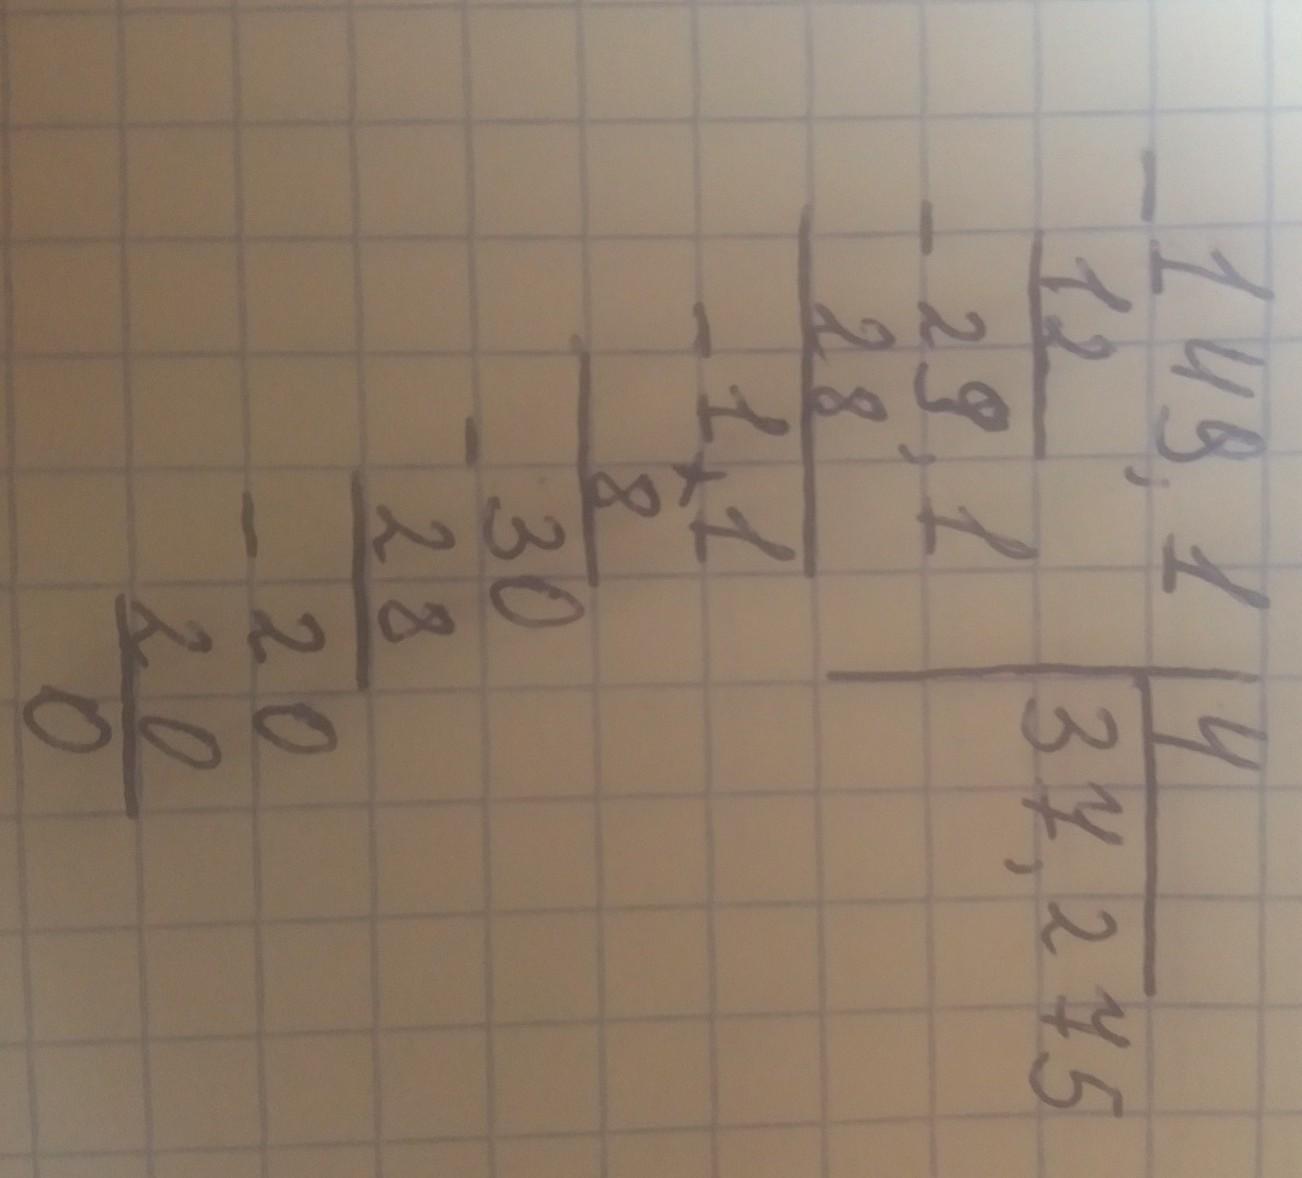 - 149,1 | 4
12 | 37,275
- 29,1
28
- 1,1
8
- 30
28
- 20
20
0